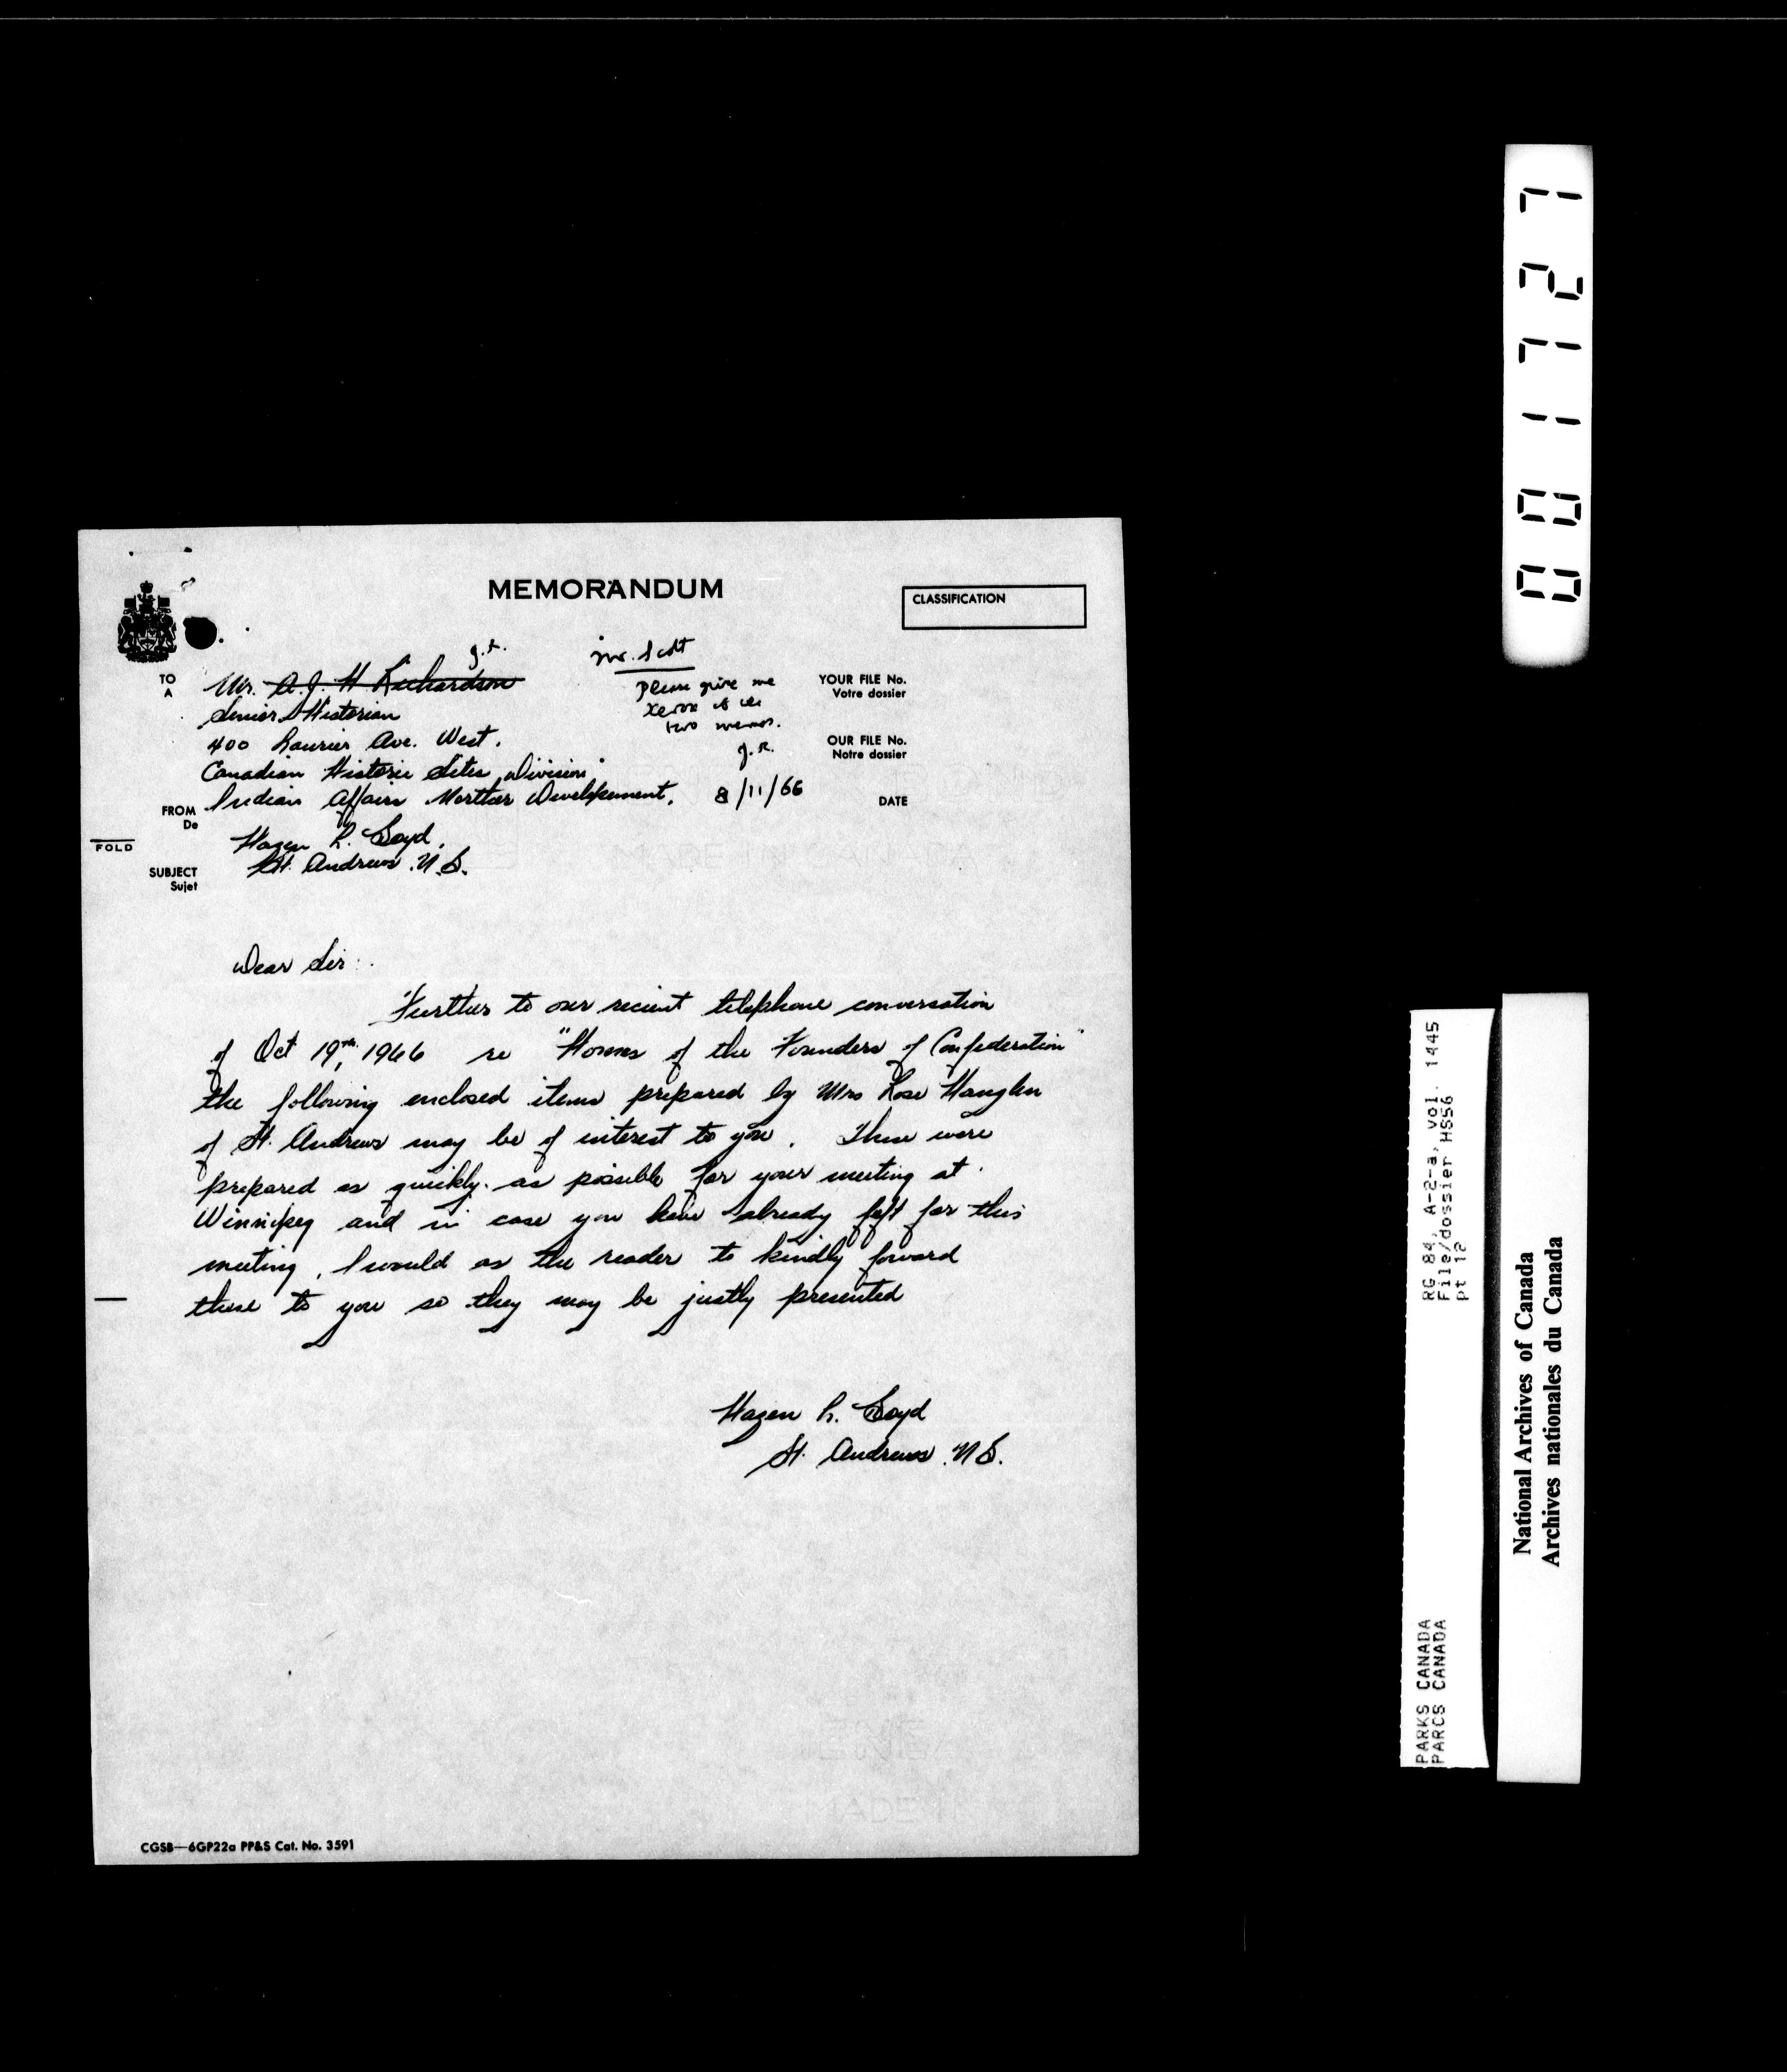 MEMORANDUM
CLASSIFICATION
TO
A
Mr. A. J. H Richardson
Senior Historian
400 Laurier Ave. West.
Canadian Historic Sites Division
Indian Affairs Norther Develpement.
Mr. Scott
Please give me
xerox of
two memos.
J.R.
8/11/66
YOUR FILE No.
Votre dossier
OUR FILE No.
Notre dossier
DATE
FROM
De
Hazen L. Boyd.
St. Andrews N.B.
FOLD
SUBJECT
Sujet
Dear Sir:
Further to our recient telephone conversation
of Oct 19th, 1966 re "Homes of the Founders of Confederation"
the following enclosed items prepared by Mrs Rose Haughn
of St. Andrews may be of interest to you. These were
prepared as quickly as possible for your meeting at
Winnipeg and in case you have already left for this
meeting, I would as the reader to kindly forward
these to you so they may be justly presented
Hazen L. Boyd
St. Andrews N B.
CGSB—6GP22a PP&S Cat. No. 3591
001727
RG 84, A-2-a, vol. 1445
File/dossier HS56
pt 12
PARKS CANADA
PARCS CANADA
National Archives of Canada
Archives nationales du Canada